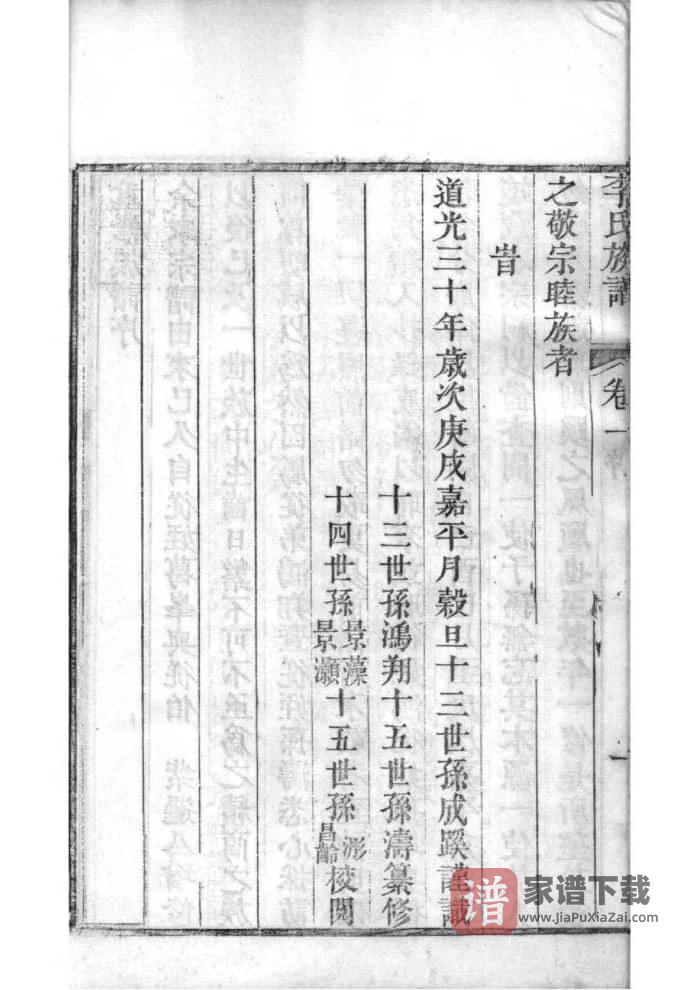 李氏族譜 卷一 一
之敬宗睦族者
旹
道光三十年歲次庚戌嘉平月榖旦十三世孫成蹊謹識
十三世孫鴻翔十五世孫濤纂修
十四世孫景藻景灝十五世孫澎昌齡校閱
譜
家谱下载
www.JiaPuXiaZai.com